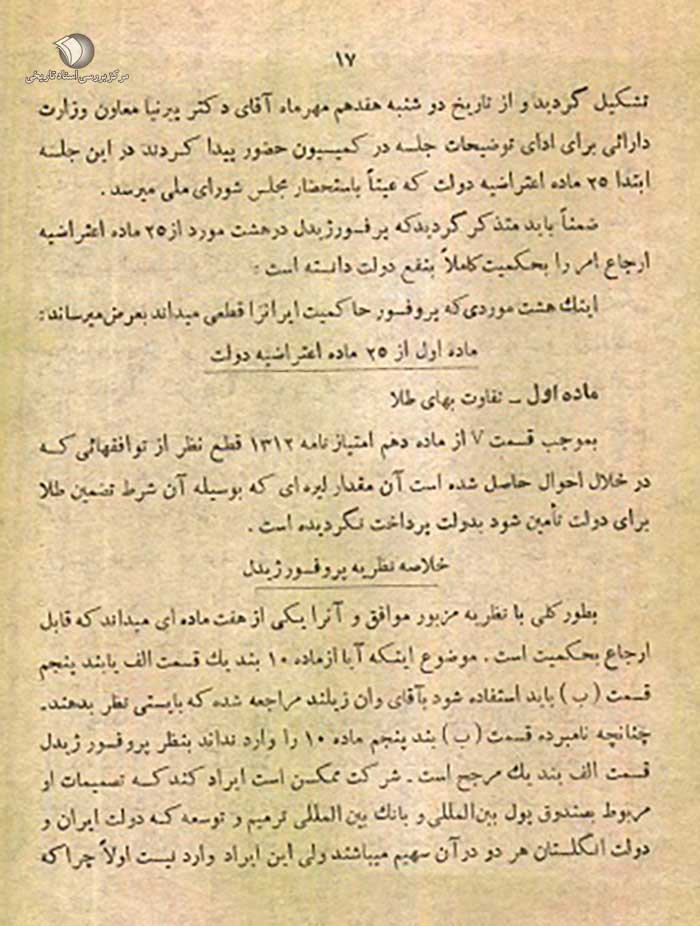 مرکز بررسی اسناد تاریخی
۱۷
تشکیل گردید و از تاریخ دو شنبه هفدهم مهرماه آقای دکتر پیرنیا معاون وزارت
دارائی برای ادای توضیحات جلسه در کمیسیون حضور پیدا کردند در این جلسه
ابتدا ۲۵ ماده اعتراضیه دولت که عیناً باستحضار مجلس شورای ملی میرسد .
ضمناً باید متذکر گردید که پرفسور ژیدل در هشت مورد از ۲۵ ماده اعتراضیه
ارجاع امر را بحکمیت کاملاً بنفع دولت دانسته است :
اینك هشت موردی که پروفسور حاکمیت ایرانرا قطعی میداند بعرض میرساند :
ماده اول از ۲۵ ماده اعتراضیه دولت
ماده اول ـ تفاوت بهای طلا
بموجب قسمت ۷ از ماده دهم امتیاز نامه ۱۳۱۲ قطع نظر از توافقهائی که
در خلال احوال حاصل شده است آن مقدار لیره ای که بوسیله آن شرط تضمین طلا
برای دولت تأمین شود بدولت پرداخت نگردیده است .
خلاصه نظریه پروفسور ژیدل
بطور کلی با نظریه مزبور موافق و آنرا یکی از هفت ماده ای میداند که قابل
ارجاع بحکمیت است . موضوع اینکه آیا از ماده ۱۰ بند یك قسمت الف یا بند پنجم
قسمت ( ب ) باید استفاده شود بآقای وان زیلند مراجعه شده که بایستی نظر بدهند .
چنانچه نامبرده قسمت ( ب ) بند پنجم ماده ۱۰ را وارد نداند بنظر پروفسور ژیدل
قسمت الف بند یك مرجح است . شرکت ممکن است ایراد کند که تصمیمات او
مربوط بصندوق پول بین‌المللی و بانك بین المللی ترمیم و توسعه که دولت ایران و
دولت انگلستان هر دو در آن سهیم میباشند ولی این ایراد وارد نیست اولاً چرا که